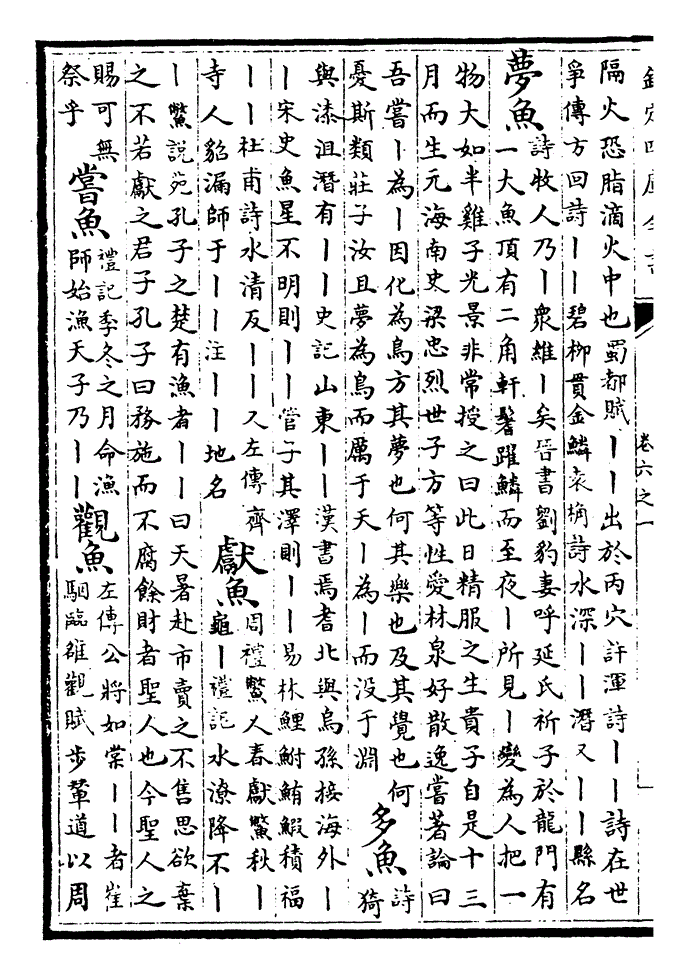 欽定四庫全書
卷六之一
隔火恐脂滴火中也蜀都賦丨丨出於丙穴許渾詩丨丨詩在世
爭傳方回詩丨丨碧柳貫金鱗袁桷詩水深丨丨潛又丨丨縣名
夢魚
詩牧人乃丨衆維丨矣晉書劉豹妻呼延氏祈子於龍門有
一大魚頂有二角軒鬐躍鱗而至夜丨所見丨變為人把一
物大如半雞子光景非常授之曰此日精服之生貴子自是十三
月而生元海南史梁忠烈世子方等性愛林泉好散逸嘗著論曰
吾嘗丨為丨因化為鳥方其夢也何其樂也及其覺也何
憂斯類莊子汝且夢為鳥而厲于天丨為丨而没于淵
多魚
詩
猗
與漆沮潛有丨丨史記山東丨丨漢書焉耆北與烏孫接海外丨
丨宋史魚星不明則丨丨管子其澤則丨丨易林鯉鮒鮪鰕積福
丨丨杜甫詩水清反丨丨丨又左傳齊
寺人貂漏師于丨丨注丨丨地名
獻魚
周禮鱉人春獻鱉秋丨
龜丨禮記水潦降不丨
丨鱉說苑孔子之楚有漁者丨丨曰天暑赴市賣之不售思欲棄
之不若獻之君子孔子曰務施而不腐餘財者聖人也今聖人之
賜可無
祭乎
嘗魚
禮記季冬之月命漁
師始漁天子乃丨丨
觀魚
左傳公將如棠丨丨者崔
駰臨雒觀賦步輦道以周